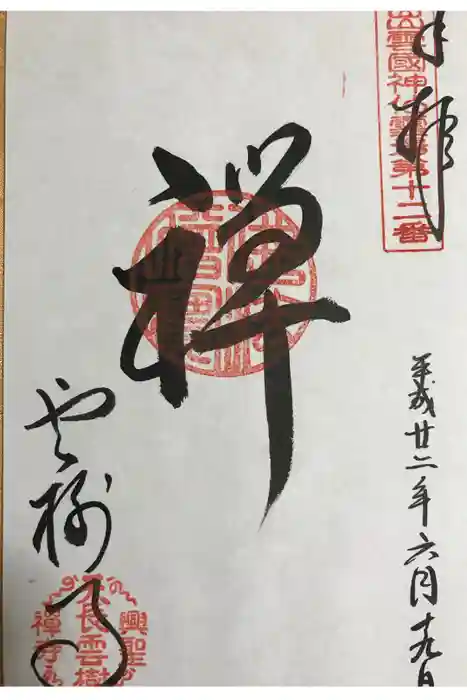 奉拝
出雲國神仏霊場第十二番
平成廿二年六月十九日
禅
雲樹寺
天長雲樹
興聖
禅寺